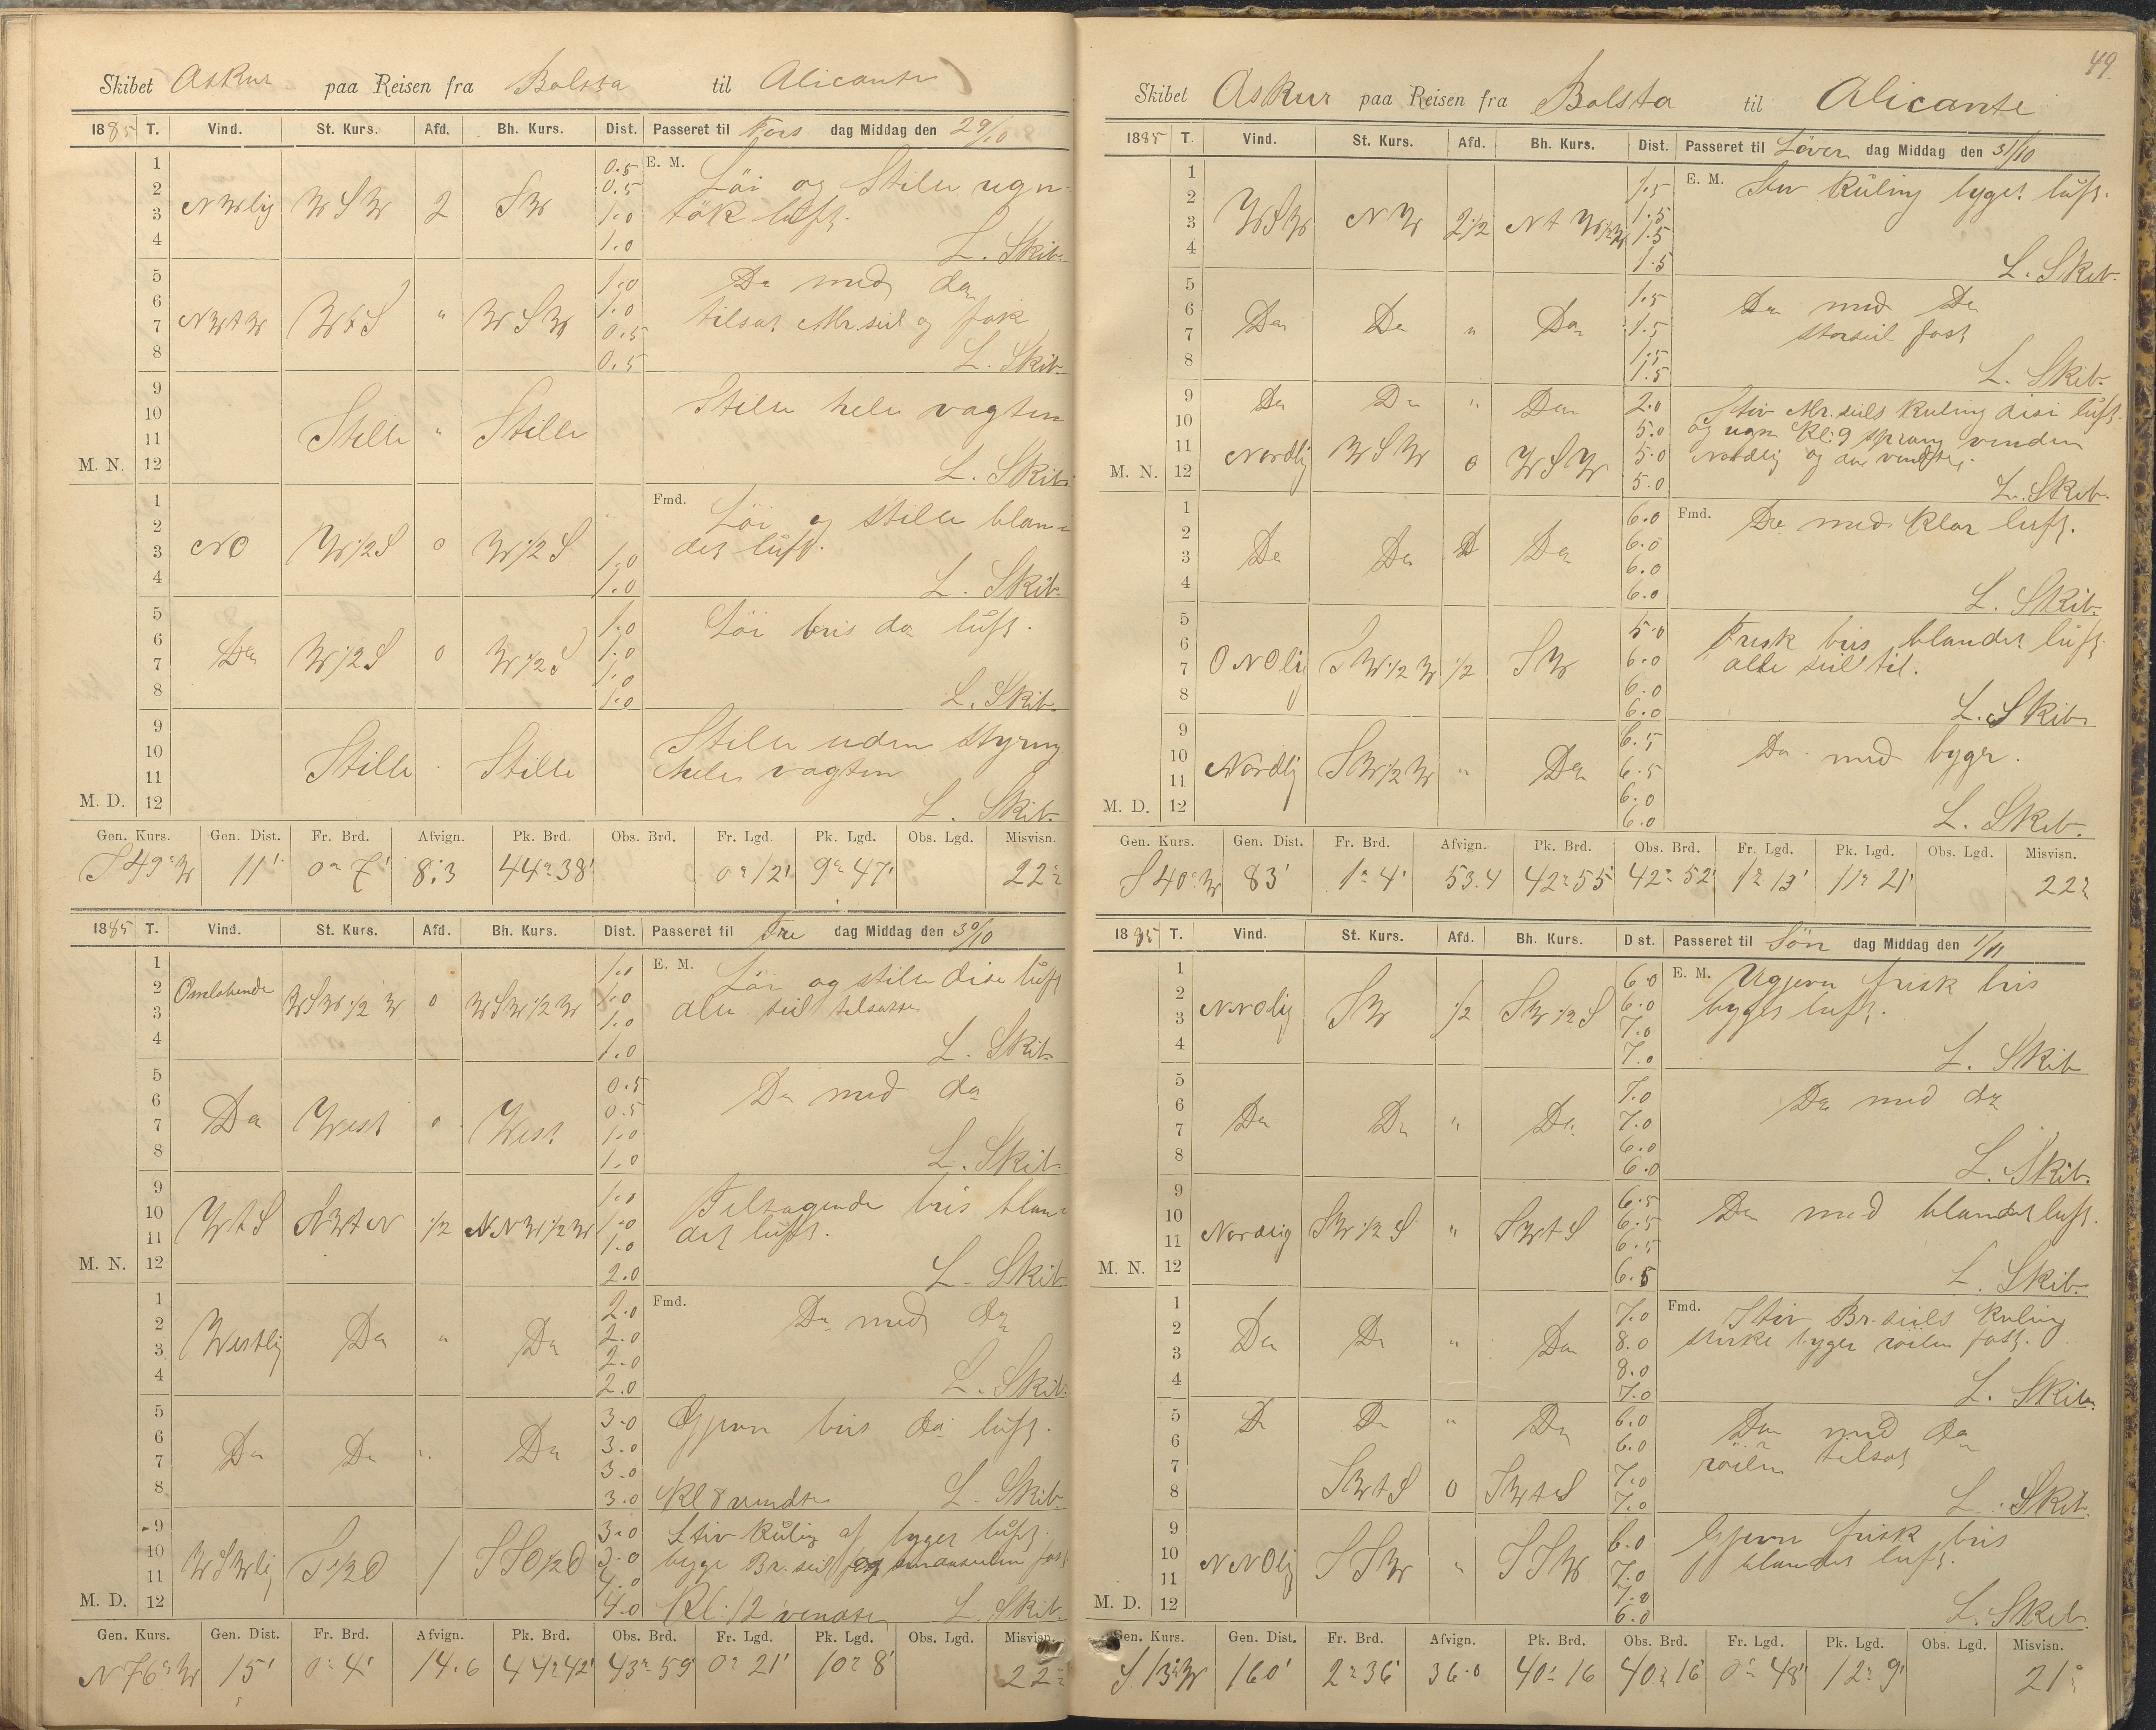 Skibet Askur paa Reisen fra Bolsta til Alicante
1885 T. Vind. St. Kurs. Afd. Bh. Kurs. Dist. Passeret til Tors dag Middag den 29/10
1 0.5 E. M. Löi og Stille ugn-
2 NWlig WSW 2 SW 0.5 tök luft.
3 1.0
4 1.0 L. Skib.
5 1.0 Do med do
6 NWtW WtS " WSW 1.0 tilsat Mr. seil og fok
7 0.5
8 0.5 L. Skib.
9 Stille hele vagten
10 Stille " Stille
11
M. N. 12 L. Skib.
1 Fmd. Löi og stille blan-
2 NO W½S 0 W½S det luft.
3 1.0
4 1.0 L. Skib.
5 1.0 Löi bris do luft.
6 Do W½S 0 W½S 1.0
7 1.0
8 1.0 L. Skib.
9 Stille uden styring
10 Stille Stille hele vagten
11
M. D. 12 L. Skib.
Gen. Kurs. Gen. Dist. Fr. Brd. Afvign. Pk. Brd. Obs. Brd. Fr. Lgd. Pk. Lgd. Obs. Lgd. Misvisn.
S 49° W 11' 0° 7' 8.3 44° 38' 0° 12' 9° 47' 22°
1885 T. Vind. St. Kurs. Afd. Bh. Kurs. Dist. Passeret til Fre dag Middag den 30/10
1 1.0 E. M. Löi og stille dise luft
2 Omlobende WSW½W 0 WSW½W 1.0 alle seil tilsatte
3 1.0
4 1.0 L. Skib.
5 0.5 Do med do
6 Do West 0 West 0.5
7 1.0
8 1.0 L. Skib.
9 1.0 Tiltagende bris blan-
10 WtS NWtN ½ NNW½W 1.0 det luft.
11 1.0
M. N. 12 2.0 L. Skib
1 2.0 Fmd. Do med do
2 Westlig Do " Do 2.0
3 2.0
4 2.0 L. Skib.
5 3.0 Gjevn bris do luft.
6 Do Do " Do 3.0
7 3.0
8 3.0 Kl 8 vendte L. Skib.
9 3.0 Stiv Kuling af byget luft.
10 WSWlig S½O 1 SSO½O 3.0 byge Br. seil og smaaseilen fast
11 4.0
M. D. 12 4.0 Kl. 12 vendte L. Skib.
Gen. Kurs. Gen. Dist. Fr. Brd. Afvign. Pk. Brd. Obs. Brd. Fr. Lgd. Pk. Lgd. Obs. Lgd. Misvisn.
N 76° W 15' 0° 4' 14.6 44° 42' 43° 59' 0° 21' 10° 8' 22°
49.
Skibet Askur paa Reisen fra Bolsta til Alicante
1885 T. Vind. St. Kurs. Afd. Bh. Kurs. Dist. Passeret til Löver dag Middag den 31/10
1 1.5 E. M. Stiv Kuling byget luft.
2 WSW NW 2½ NtW½W 1.5
3 1.5
4 1.5 L. Skib.
5 1.5 Do med Do
6 Do Do " Do 1.5 storseil fast
7 1.5
8 1.5 L. Skib.
9 Do Do " Do 2.0 Stiv Mr. seils Kuling disi luft.
10 5.0 og regn Kl: 9 sprang vinden
11 Nordlig WSW 0 WSW 5.0 Nordlig og da vendtes
M. N. 12 5.0 L. Skib.
1 6.0 Fmd. Do med klar luft.
2 Do Do Do 6.0
3 6.0
4 6.0 L. Skib.
5 5.0 Frisk bris blandet luft
6 ONOlig SW½W ½ SW 6.0 alle seil til.
7 6.0
8 6.0 L. Skib
9 6.5 Do med byger.
10 Nordlig SW½W " Do 6.5
11 6.0
M. D. 12 6.0 L. Skib.
Gen. Kurs. Gen. Dist. Fr. Brd. Afvign. Pk. Brd. Obs. Brd. Fr. Lgd. Pk. Lgd. Obs. Lgd. Misvisn.
S 40° W 83' 1° 4' 53.4 42° 55' 42° 52' 1° 13' 11° 21' 22°
1885 T. Vind. St. Kurs. Afd. Bh. Kurs. Dist. Passeret til Sön dag Middag den 1/11
1 6.0 E. M. Ugjevn frisk bris
2 NNOlig SW ½ SW½S 6.0 byget luft.
3 7.0
4 7.0 L. Skib
5 7.0 Do med do
6 Do Do " Do 7.0
7 6.0
8 6.0 L. Skib.
9 6.5 Do med blandet luft.
10 Nordlig SW½S " SWtS 6.5
11 6.5
M. N. 12 6.5 L. Skib.
1 7.0 Fmd. Stiv Br. seils Kuling
2 Do Do " Do 8.0 sterke byger röilen fast.
3 8.0
4 7.0 L. Skib.
5 Do Do " Do 6.0 Do med do
6 6.0 röilen tilsat
7 7.0
8 SWtS 0 SWtS 7.0 L. Skib.
9 6.0 Gjevn frisk bris
10 NNOlig SSW " SSW 7.0 blandet luft.
11 7.0
M. D. 12 6.0 L. Skib.
Gen. Kurs. Gen. Dist. Fr. Brd. Afvign. Pk. Brd. Obs. Brd. Fr. Lgd. Pk. Lgd. Obs. Lgd. Misvisn.
S. 13° W 160' 2° 36' 36.0 40° 16 40° 16' 0° 48' 12° 9' 21°